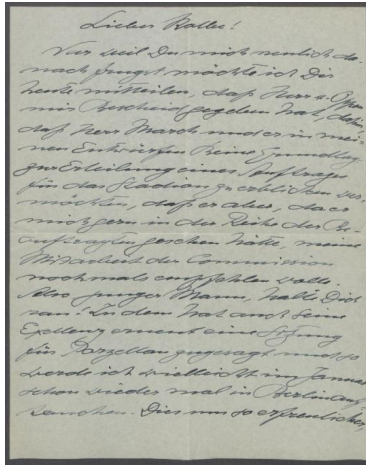 Lieber Kolbe!
Nur weil Du mich neulich da-
nach frugst möchte ich Dir
heute mitteilen, daß Herr v. Oppen
mir Bescheid gegeben hat,
daß Herr March und er in mei-
nen Entwürfen keine Grundlage
zur Erteilung eines Auftrages
für das Stadion zu erblicken ver-
möchten, daß er aber, da er
mich gern in der Reihe der Be-
auftragten gesehen hätte, meine
Mitarbeit der Commission
nochmals empfehlen wolle.
Also junger Mann, halte Dich
ran! Zu dem hat auch Seine
Exellenz erneut eine Sitzung
für Porzellan angesagt und so
werde ich vielleicht im Januar
schon wieder mal in Berlin auf-
tauchen. Dies um so erfreulicher,